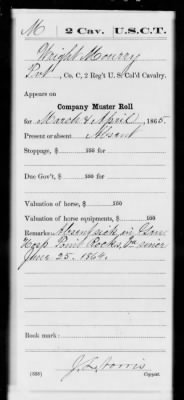 M | 2 Cav. | U.S.C.T.
Wright Mourry
Pvt, Co. C, 2 Reg't U. S. Col'd Cavalry.
Appears on
Company Muster Roll
for March & April, 1865.
Present or absent Absent
Stoppage, $ 100 for
Due Gov't, $ 100 for
Valuation of horse, $ 100
Valuation of horse equipments, $ 100
Remarks: Absent sick in Genl
Hosp Point Rocks, Va since
June 25. 1864.
Book mark:
(858)
Copyist.